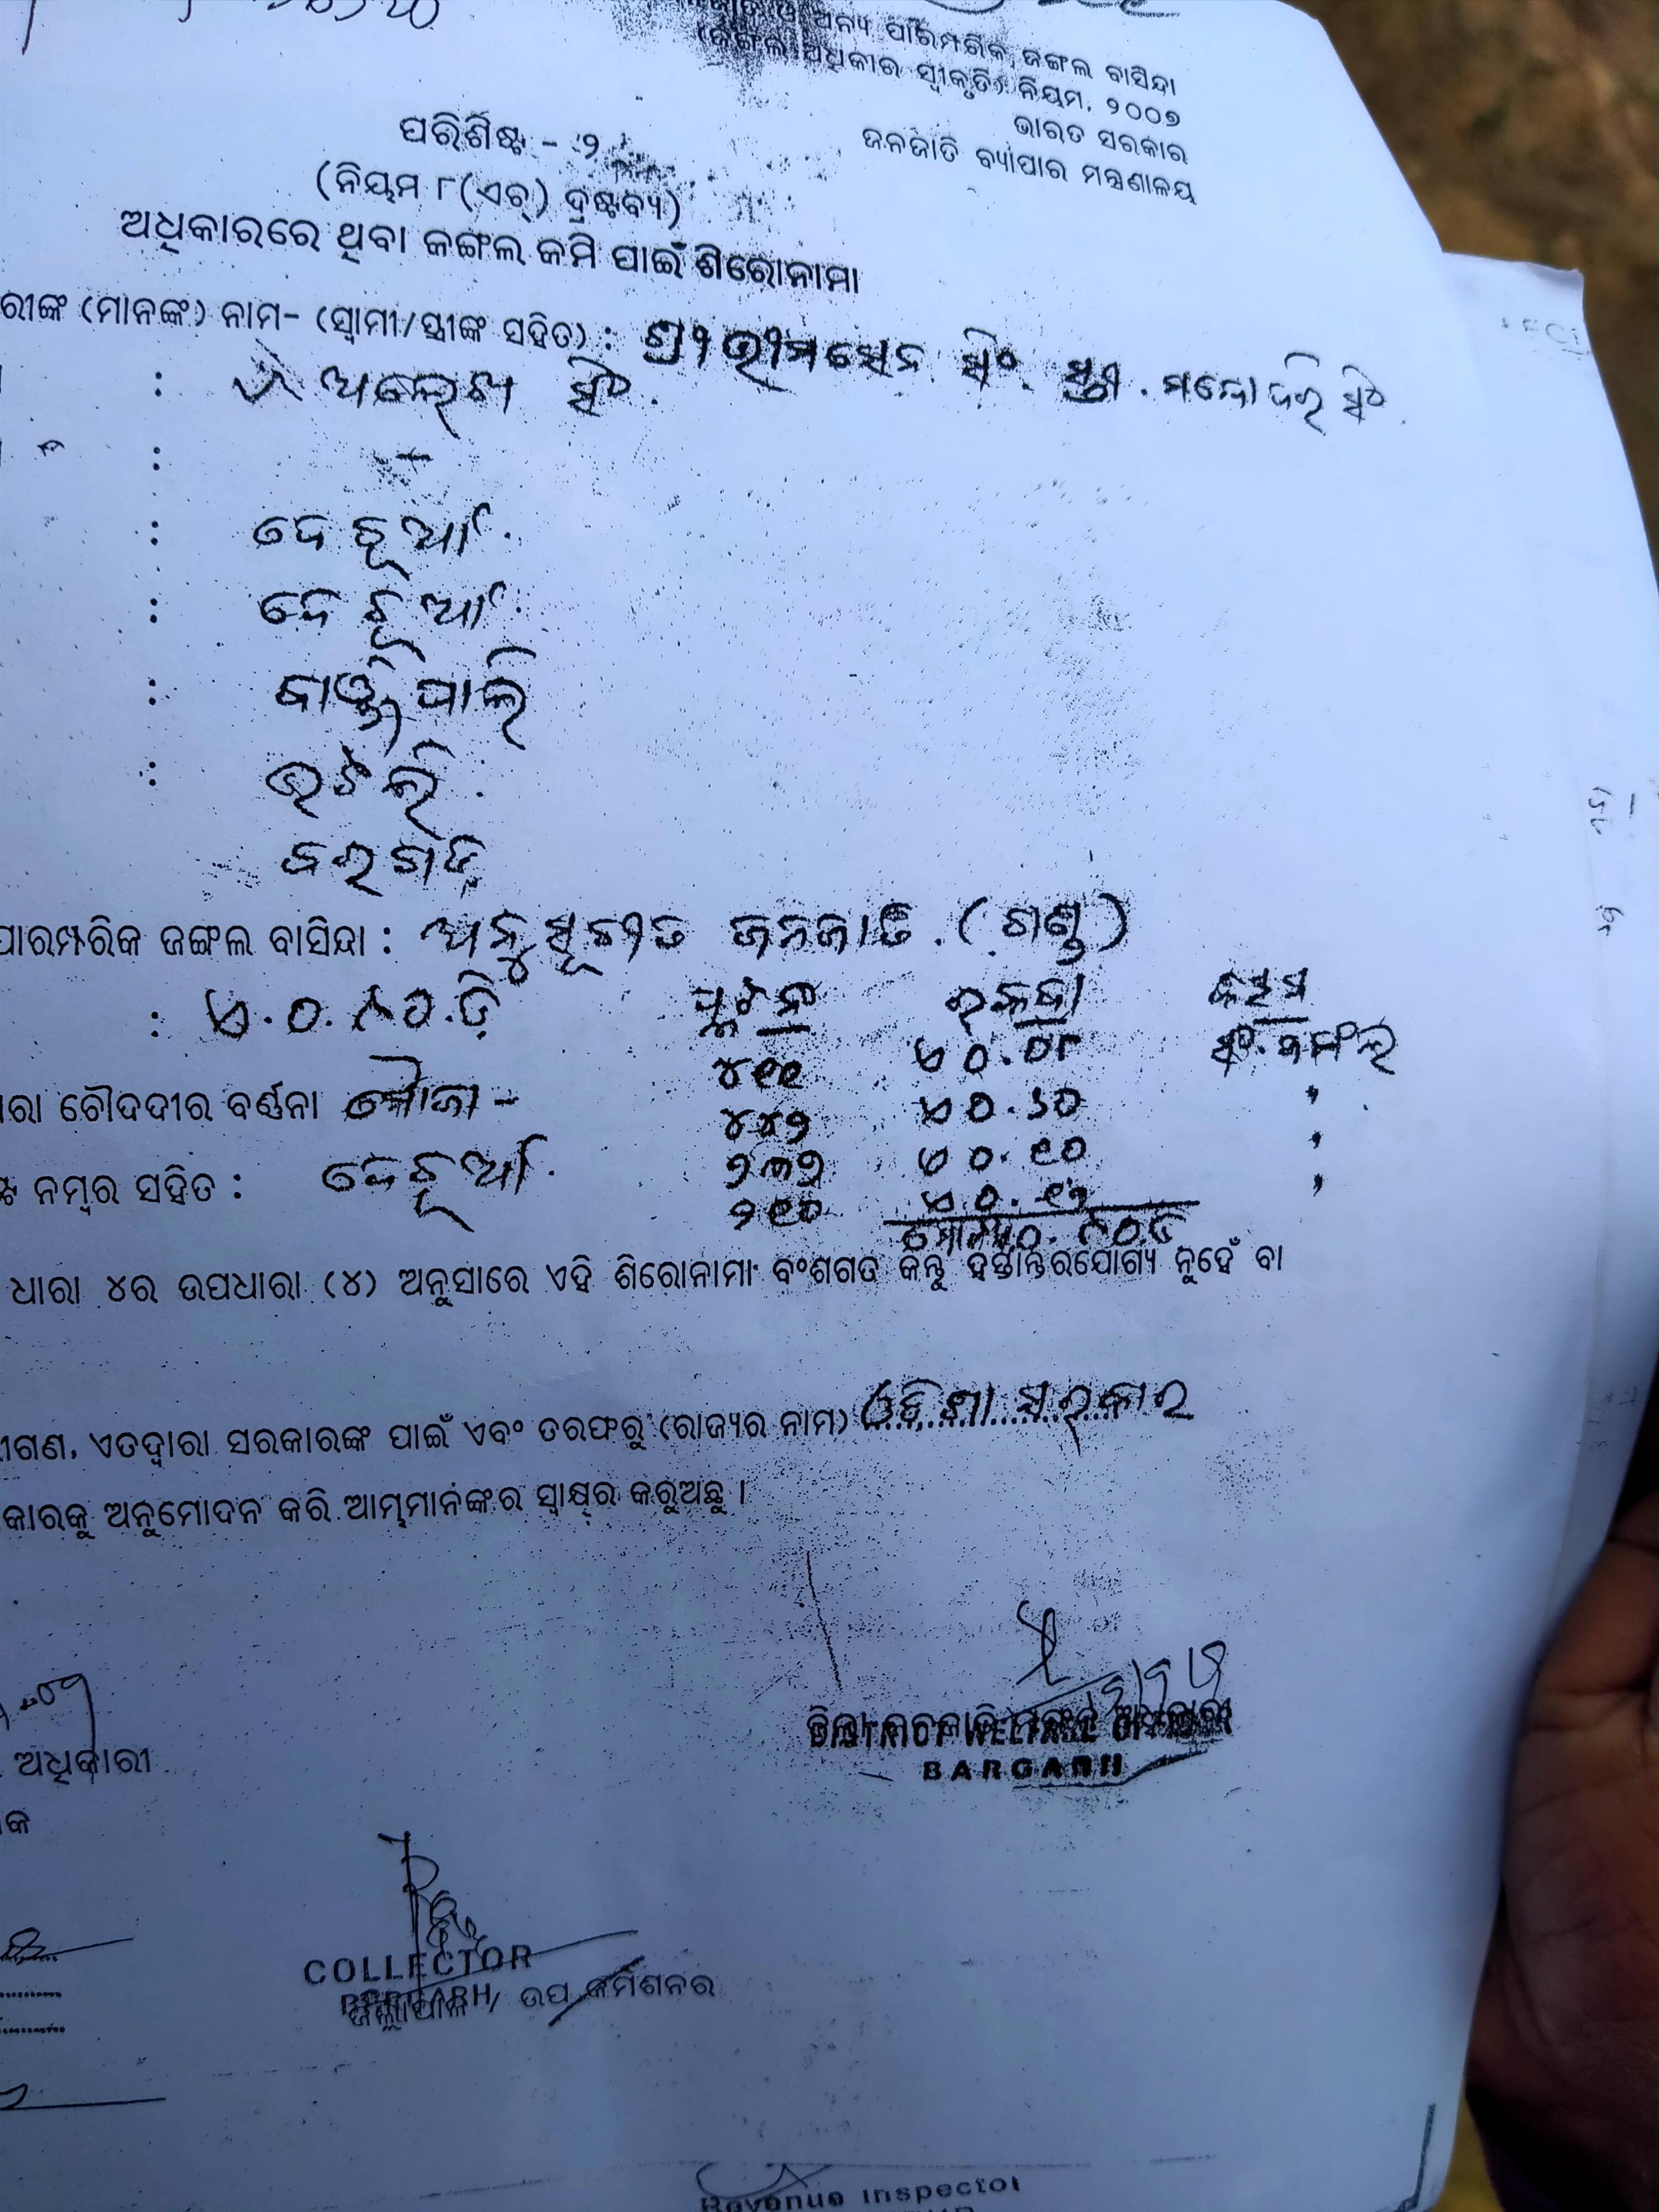 ଅନ୍ୟ ପାରମ୍ପରିକ ଜଙ୍ଗଲ ବାସିନ୍ଦା
(ଜଙ୍ଗଲ ଅଧିକାର ସ୍ୱୀକୃତି) ନିୟମ, ୨୦୦୭
ଭାରତ ସରକାର
ଜନଜାତି ବ୍ୟାପାର ମନ୍ତ୍ରଣାଳୟ
ପରିଶିଷ୍ଟ - ୨
(ନିୟମ ୮(ଏଚ୍) ଦ୍ରଷ୍ଟବ୍ୟ)
ଅଧିକାରରେ ଥିବା ଜଙ୍ଗଲ ଜମି ପାଇଁ ଶିରୋନାମା
ରୀଙ୍କ (ମାନଙ୍କ) ନାମ- (ସ୍ୱାମୀ/ସ୍ତ୍ରୀଙ୍କ ସହିତ) : ଶ୍ରୀ ଭୀମସେନ ସିଂ ସ୍ତ୍ରୀ. ମନ୍ଦୋଦରି ସିଂ
: ଅଲେଖ ସିଂ.
: -
: ଦେଚୂଆଁ.
: ଦେଚୂଆଁ.
:
: ଭଟଲି.
ବରଗଡ଼
ପାରମ୍ପରିକ ଜଙ୍ଗଲ ବାସିନ୍ଦା : ଅନୁସୂଚୀତ ଜନଜାତି. (ଗଣ୍ଡ)
: ପ୍ଲଟ ନଂ ରକବା କିସମ
୪୧୧ ଏ ୦.୦୮ ସଂ. ଜଙ୍ଗଲ
ରା ଚୌଦଦୀର ବର୍ଣ୍ଣନା ମୌଜା - ୪୪୨ ଏ ୦.୬୦ "
୨୩୨ ଏ ୦.୧୦ "
ନମ୍ବର ସହିତ : ଦେଚୂଆଁ. ୨୧୦ ଏ ୦.୧୨ "
ଧାରା ୪ର ଉପଧାରା (୪) ଅନୁସାରେ ଏହି ଶିରୋନାମା ବଂଶଗତ କିନ୍ତୁ ହସ୍ତାନ୍ତରଯୋଗ୍ୟ ନୁହେଁ ବା
ଗଣ, ଏତଦ୍ୱାରା ସରକାରଙ୍କ ପାଇଁ ଏବଂ ତରଫରୁ (ରାଜ୍ୟର ନାମ) ଓଡ଼ିଶା ସରକାର
କାରକୁ ଅନୁମୋଦନ କରି ଆମ୍ଭମାନଙ୍କର ସ୍ୱାକ୍ଷର କରୁଅଛୁ ।
ଜିଲ୍ଲା ଜନଜାତି ମଙ୍ଗଳ ଅଧିକାରୀ
DISTRICT WELFARE OFFICER
BARGARH
ଅଧିକାରୀ
କ
COLLECTOR
BARGARH
ଜିଲ୍ଲାପାଳ / ଉପ କମିଶନର
Revenue Inspector